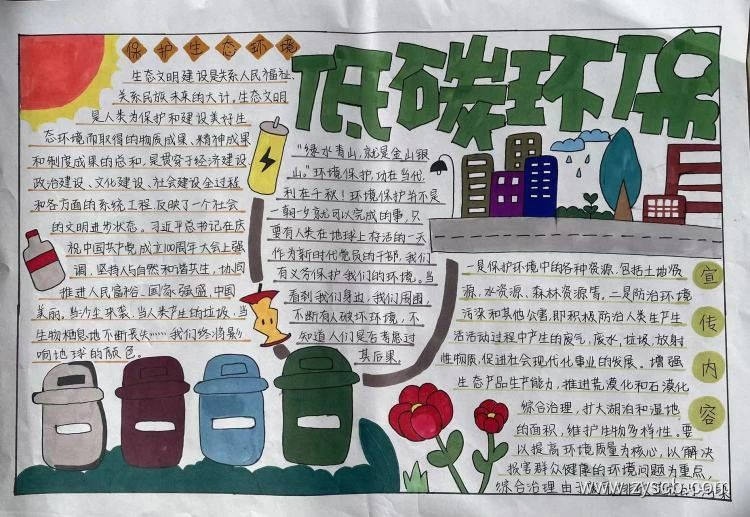 低碳环保
保护生态环境
生态文明建设是关系人民福祉、
关系民族未来的大计。生态文明
是人类为保护和建设美好生
态环境而取得的物质成果、精神成果
和制度成果的总和,是贯穿于经济建设
政治建设、文化建设、社会建设全过程
和各方面的系统工程,反映了一个社会
的文明进步状态。习近平总书记在庆
祝中国共产党成立100周年大会上强
调,坚持人与自然和谐共生,协同
推进人民富裕、国家强盛、中国
美丽。当为尘来袭,当人类产生的垃圾,当
生物栖息地不断丧失……我们终将影
响地球的颜色。
"绿水青山,就是金山银
山。"环境保护,功在当代,
利在千秋!环境保护并不是
一朝一夕就可以完成的事,只
要有人类在地球上存活的一天
作为新时代党员的干部,我们
有义务保护我们的环境。当
看到我们身边,我们周围,
不断有人破坏环境,不
知道人们是否考虑过
其后果,
宣传内容
一是保护环境中的各种资源,包括土地资
源、水资源、森林资源等,二是防治环境
污染和其他公害,即积极防治人类生产生
活活动过程中产生的废气、废水、垃圾、放射
性物质,促进社会现代化事业的发展。增强
生态产品生产能力,推进荒漠化和石漠化
综合治理,扩大湖泊和湿地
的面积,维护生物多样性。要
以提高环境质量为核心,以解决
损害群众健康的环境问题为重点,
综合治理由